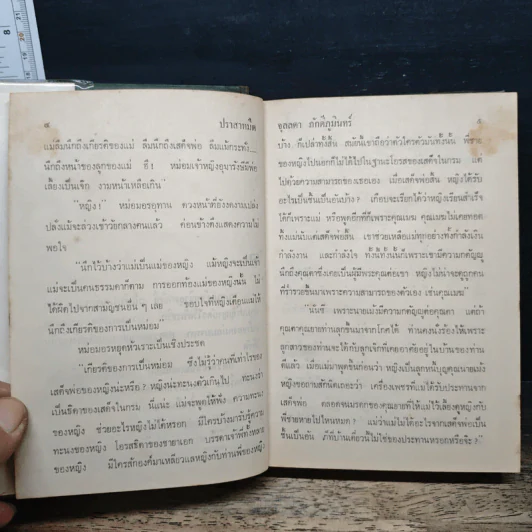 ๘ ปราสาทมืด
แม่ลืมนึกถึงเกียรติของแม่ ลืมนึกถึงเสด็จพ่อ ลืมแม้กระทั่ง
นึกถึงหน้าของลูกของแม่ ฮึ! หม่อมเจ้าหญิงอุมารังษีมีพ่อ
เลี้ยงเป็นเจ๊ก งามหน้าเหลือเกิน"
"หญิง!" หม่อมอรอุทาน ดวงหน้าที่ยังงดงามเปล่ง
ปลั่งแม้จะล่วงเข้าวัยกลางคนแล้ว ค่อนข้างตึงแสดงความไม่
พอใจ
"นึกไว้บ้างว่าแม่เป็นแม่ของหญิง แม้หญิงจะเป็นเจ้า
แม่จะเป็นคนธรรมดาก็ตาม การออกท้องแม่ของหญิงนั้น ไม่
ได้ผิดไปจากสามัญชนอื่น ๆ เลย ขอบใจที่หญิงเตือนแม่ให้
นึกถึงเกียรติของการเป็นหม่อม"
หม่อมอรหยุดหัวเราะเป็นเชิงประชด
"เกียรติของการเป็นหม่อม ซึ่งไม่รู้ว่าคนที่เท่าไรของ
เสด็จพ่อของหญิงน่ะหรือ? หญิงน่ะทะนงตัวเกินไป ทะนงว่า
เป็นธิดาของเสด็จในกรม นี่แน่ะ แม่จะพูดให้ฟัง ความ
ของหญิง ช่วยอะไรหญิงไม่ได้หรอก มีใครบ้างมารับรู้ความ
ทะนงของหญิง โอรสธิดาของชายาเอก บรรดาเจ้าพี่ทั้งหลาย
ของหญิง มีใครสักองค์มาเหลียวแลหญิงกับท่านพี่ของหญิง
จุลลดา ภักดีภูมินทร์ ๙
บ้าง ก็เปล่าทั้งนั้น สมัยนี้เขาถือว่าตัวใครตัวมันทั้งนั้น พี่ชาย
ของหญิงไปนอกก็ไม่ได้ไปในฐานะโอรสของเสด็จในกรม แต่
ไปด้วยความสามารถของเธอเอง เมื่อเสด็จพ่อสิ้น หญิงได้รับ
อะไรเป็นชิ้นเป็นอันบ้าง? เกือบจะเรียกได้ว่าหญิงเรียนสำเร็จ
ได้ก็เพราะแม่ หรือพูดอีกทีก็เพราะคุณเมฆ คุณเมฆไม่เคยทอด
ทิ้งแม่นับแต่เสด็จพ่อสิ้น เขาช่วยเหลือแม่ทุกอย่างทั้งกำลังเงิน
กำลังงาน และกำลังใจ ทั้งนี้ทั้งนั้นก็เพราะเขามีความกตัญญู
นึกถึงคุณตาซึ่งเคยเป็นผู้มีพระคุณต่อเขา หญิงไม่น่าจะดูถูกคน
ที่ร่ำรวยขึ้นมาเพราะความสามารถของตัวเอง เช่นคุณเมฆ"
"นั่นซี เพราะนายเม้งมีความกตัญญูต่อคุณตา แต่ถ้า
คุณตาคุณยายท่านลุกขึ้นมาจากโกศได้ ท่านคงนั่งร้องไห้เพราะ
ลูกสาวของท่านจะได้กับลูกเจ๊กที่เคยอาศัยอยู่ในบ้านของท่าน
ดีแล้ว เมื่อแม่มาพูดขึ้นก่อนว่า หญิงเป็นลูกหนี้บุญคุณนายเม้ง
หญิงขอถามสักนิดเถอะว่า เครื่องเพชรที่แม่ได้รับประทานจาก
เสด็จพ่อ ตลอดจนมรดกของคุณยายที่ให้แม่ไว้เลี้ยงดูหญิงกับ
พี่ชายหายไปไหนหมด? แม่ว่าแม่ไม่ได้อะไรจากเสด็จพ่อเป็น
ชิ้นเป็นอัน ก็ที่บ้านเดี๋ยวนี้ไม่ใช่ของประทานหรอกหรือจ๊ะ?"